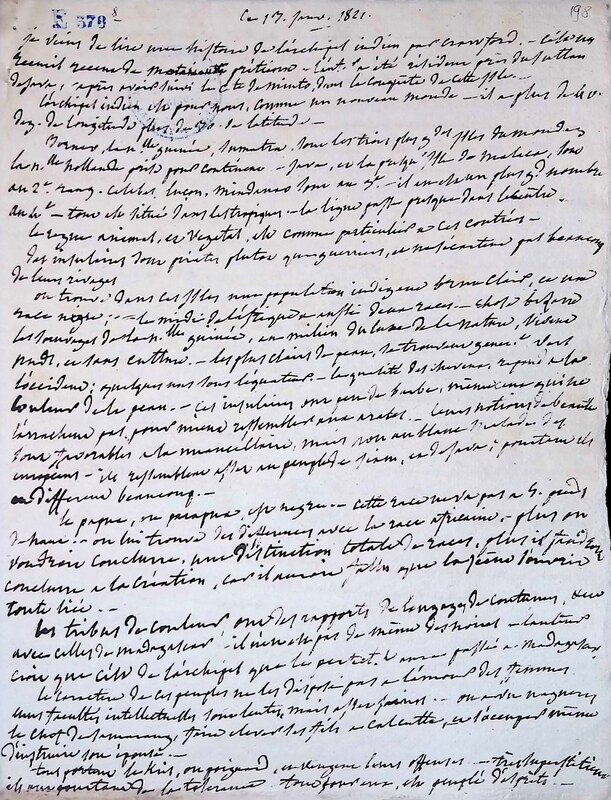 E 378 8
Ce 17. Janv. 1821.
198
je viens de lire une histoire de l'archipel indien par Crawford. - c'est un
recueil recent de petitions - l'aut. a été résident près du sultan
de java, après avoir suivi le Cte de minto, dans la conquête de cette isle. -
L'archipel indien est pour nous, comme un nouveau monde - il a plus de 40.
deg. de longitude plus de 30. de latitude. -
Borneo, la nlle guinée, Sumatra, sont les trois plus gdes isles du monde,
la nlle hollande prise pour continent. - Java, et la presqu'isle de malaca, sont
au 2e. rang. Celebes, luçon, mindanao sont au 3e. - il en est un plus gd nombre
au 4e - tout est situé dans les tropiques. - la ligne passe presque dans le centre.
le regne animal, et vegetal, est comme particulier a ces contrées -
des insulaires sont pirates plutot que guerriers, et ne s'écartent pas beaucoup
de leurs rivages
on trouve dans ces isles une population indigene brun clair, et une
race negre; - le midi de l'afrique a aussi deux races - chose bizarre
les sauvages de la nlle guinée, au milieu du luxe de la nature, vivent
nuds, et sans culture. - les plus clairs de peau, se trouvent généralt. vers
l'occident; quelques uns sous l'équateur. - la qualité des cheveux, répond a la
couleur de la peau. - ces insulaires ont peu de barbe,
l'arrachent pas, pour mieux ressembler aux arabes. - leurs notions de beauté
sont favorables a la mais non au blanc malade des
européens - ils ressemblent assez au peuple de siam, et de java; pourtant ils
en different beaucoup. -
le papua, ou papoua, est negre. - cette race ne va pas a 5. pieds
de haut. - on lui trouve des differences avec la race africaine. - plus on
voudroit conclure, une distinction totale de races, plus il faudroit
conclure a la création, car il auroit fallu que la
toute liée. -
les tribus de couleur ont des rapports de langage, de coutumes, &c
avec celles de madagascar - il n'en est pas de même des noires - l'auteur
croit que c'est de l'archipel que le a passé a madagascar
le caractere de ces peuples ne les dispose pas a l'amour des femmes.
leurs facultés intellectuelles sont lentes, mais assez saines. - on a vu nagueres
le chef de samarang, faire élever ses fils a Calcutta, et s'occuper même
d'instruire son épouse -
tous portent le kris, ou poignard, et vengent leurs offenses - très superstitieux
ils ont pourtant de la tolerance tout pour eux, est peuplé d'esprits -